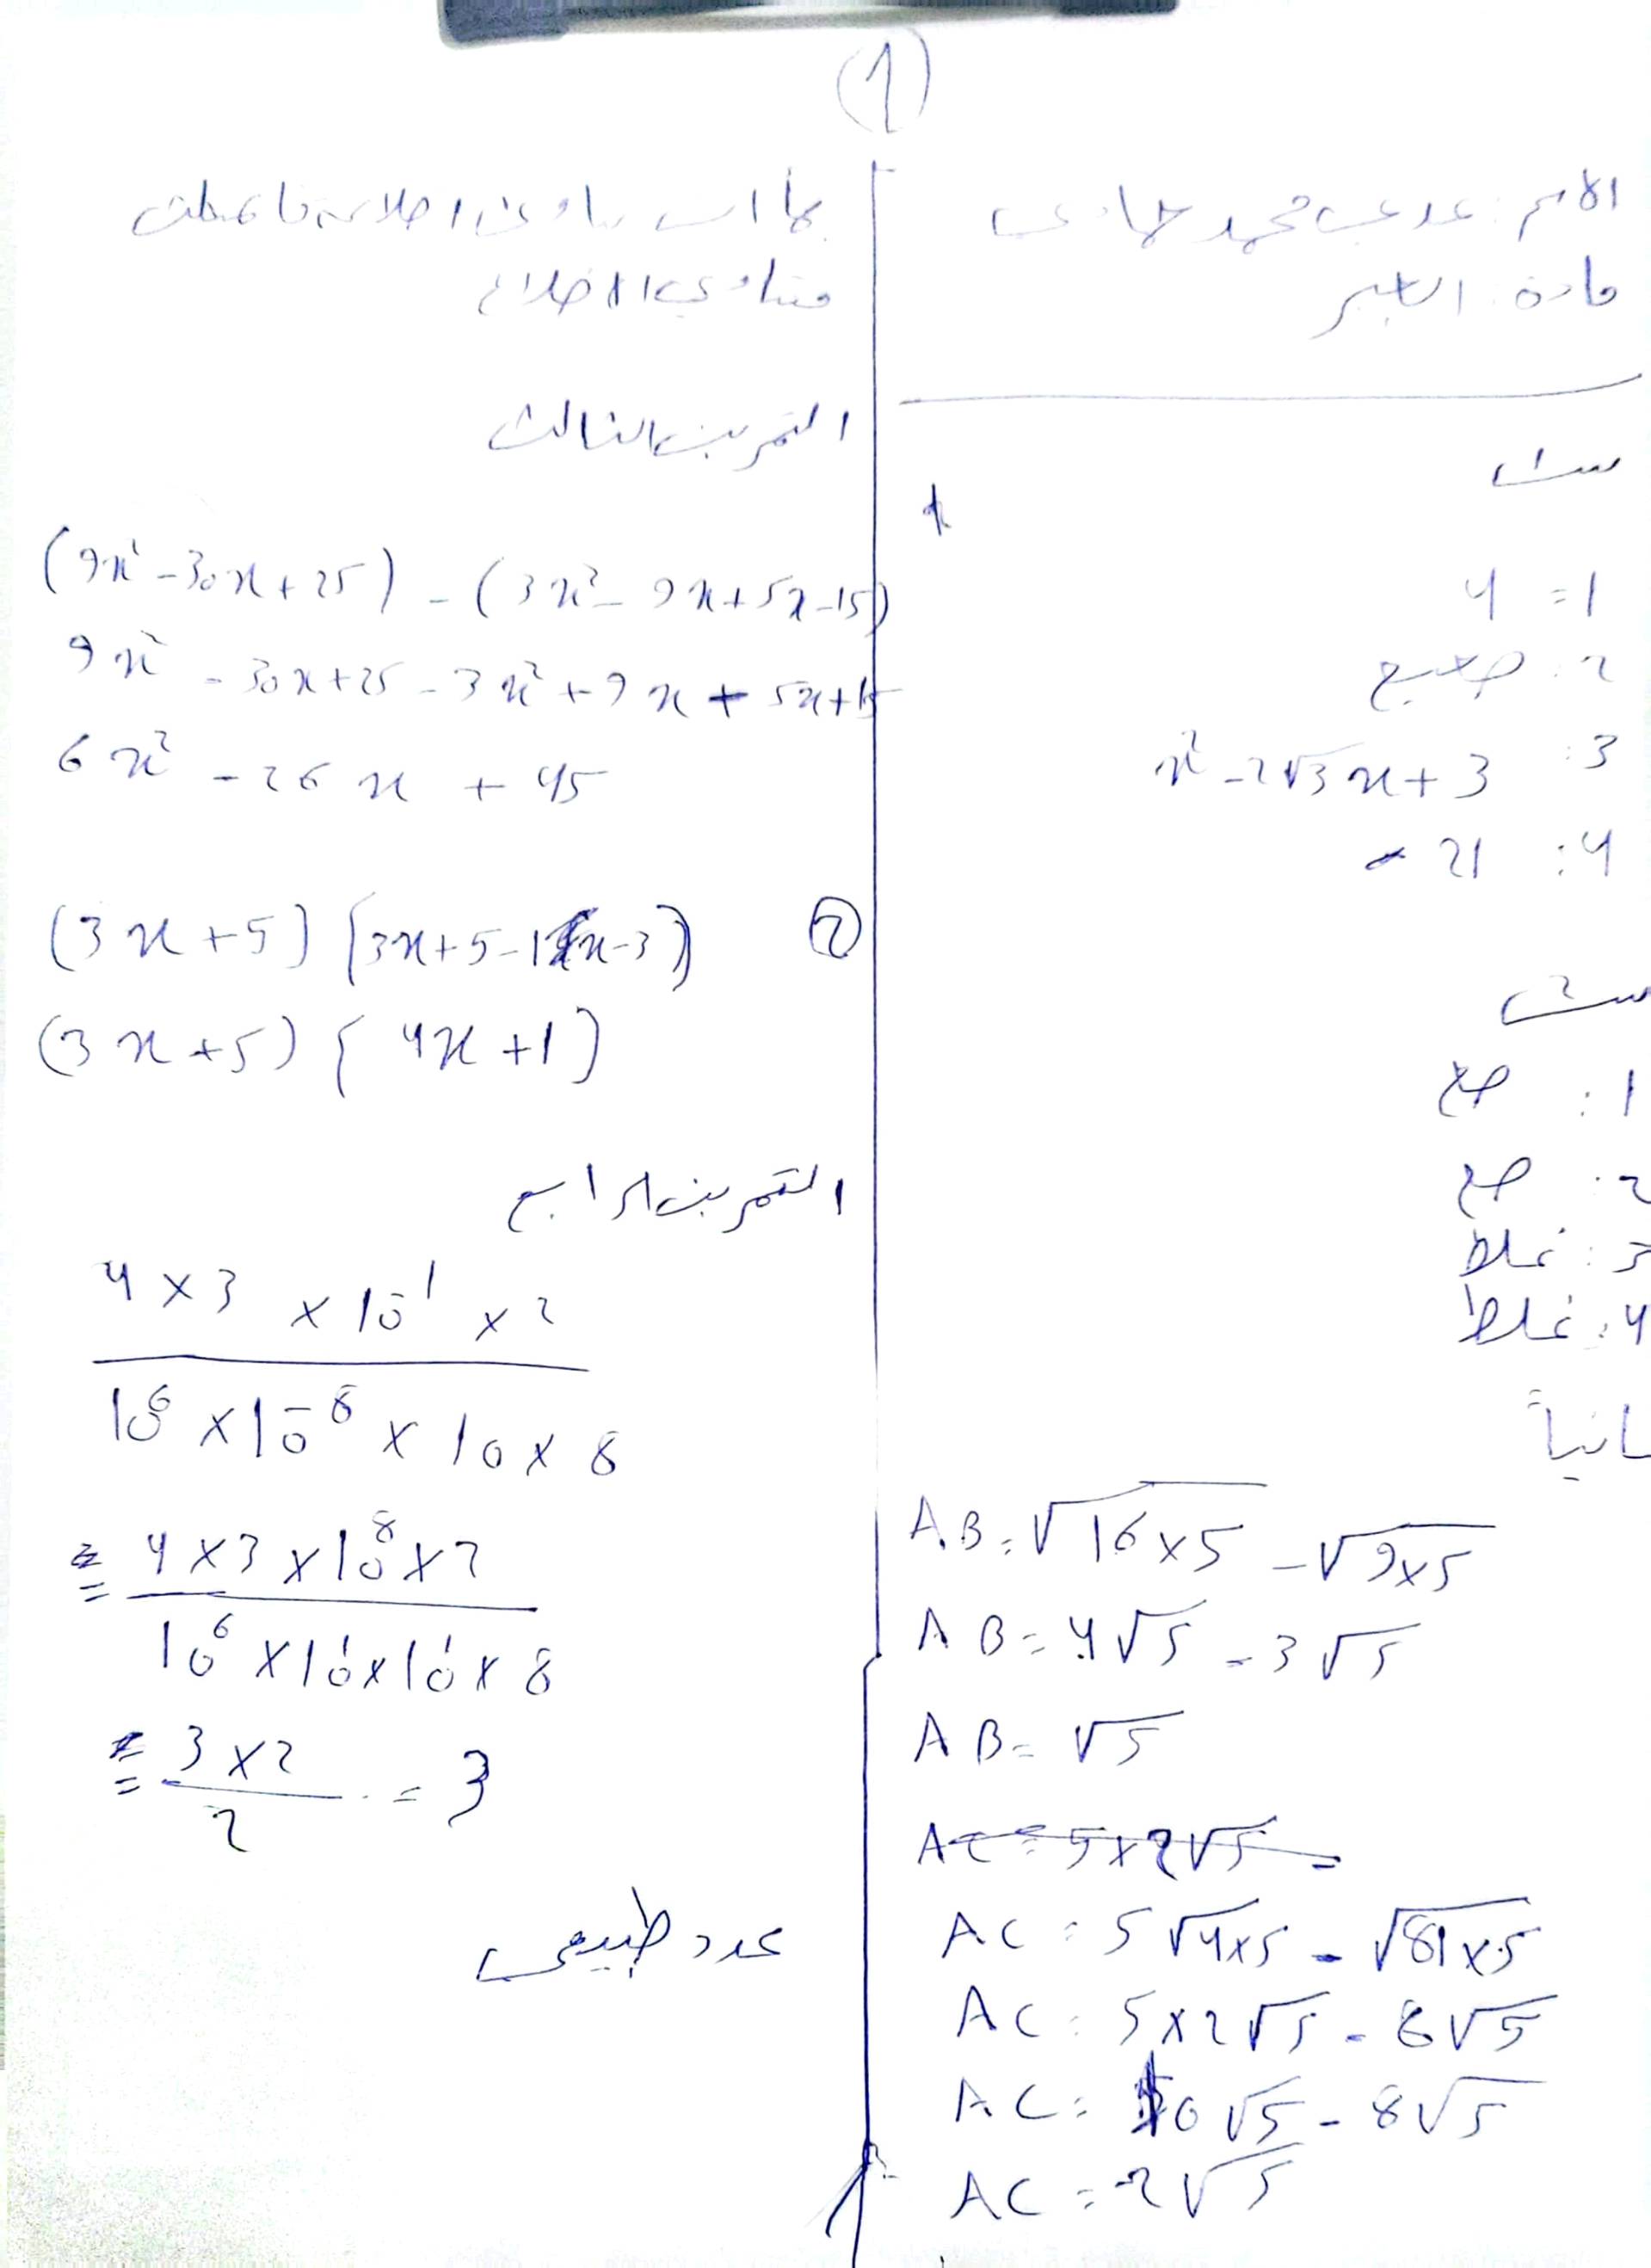 1
الاسم: عدي محمد حمادي
مادة: الجبر
س1
1= 4
2: صحيح
3: x² - 2√3 x + 3
4: - 21
س2
1: صح
2: صح
3: غلط
4: غلط
ثانياً
AB = √16×5 - √9×5
AB = 4√5 - 3√5
AB = √5
AC = 5×2√5 =
AC = 5√4×5 - √81×5
AC = 5×2√5 - 8√5
AC = 10√5 - 8√5
AC = 2√5
بما
متساوي الاضلاع
التمرين الثالث
(9x² - 30x + 25) - (3x² - 9x + 5x - 15)
9x² - 30x + 25 - 3x² + 9x + 5x + 15
6x² - 26x + 45
2 (3x + 5) (3x + 5 - 1(x - 3))
(3x + 5) ( 4x + 1 )
التمرين الرابع
4 × 3 × 10¹ × 2
10⁶ × 10⁻⁸ × 10 × 8
= 4 × 3 × 10⁸ × 2
10⁶ × 10¹ × 10¹ × 8
= 3 × 2 / 2 = 3
عدد طبيعي